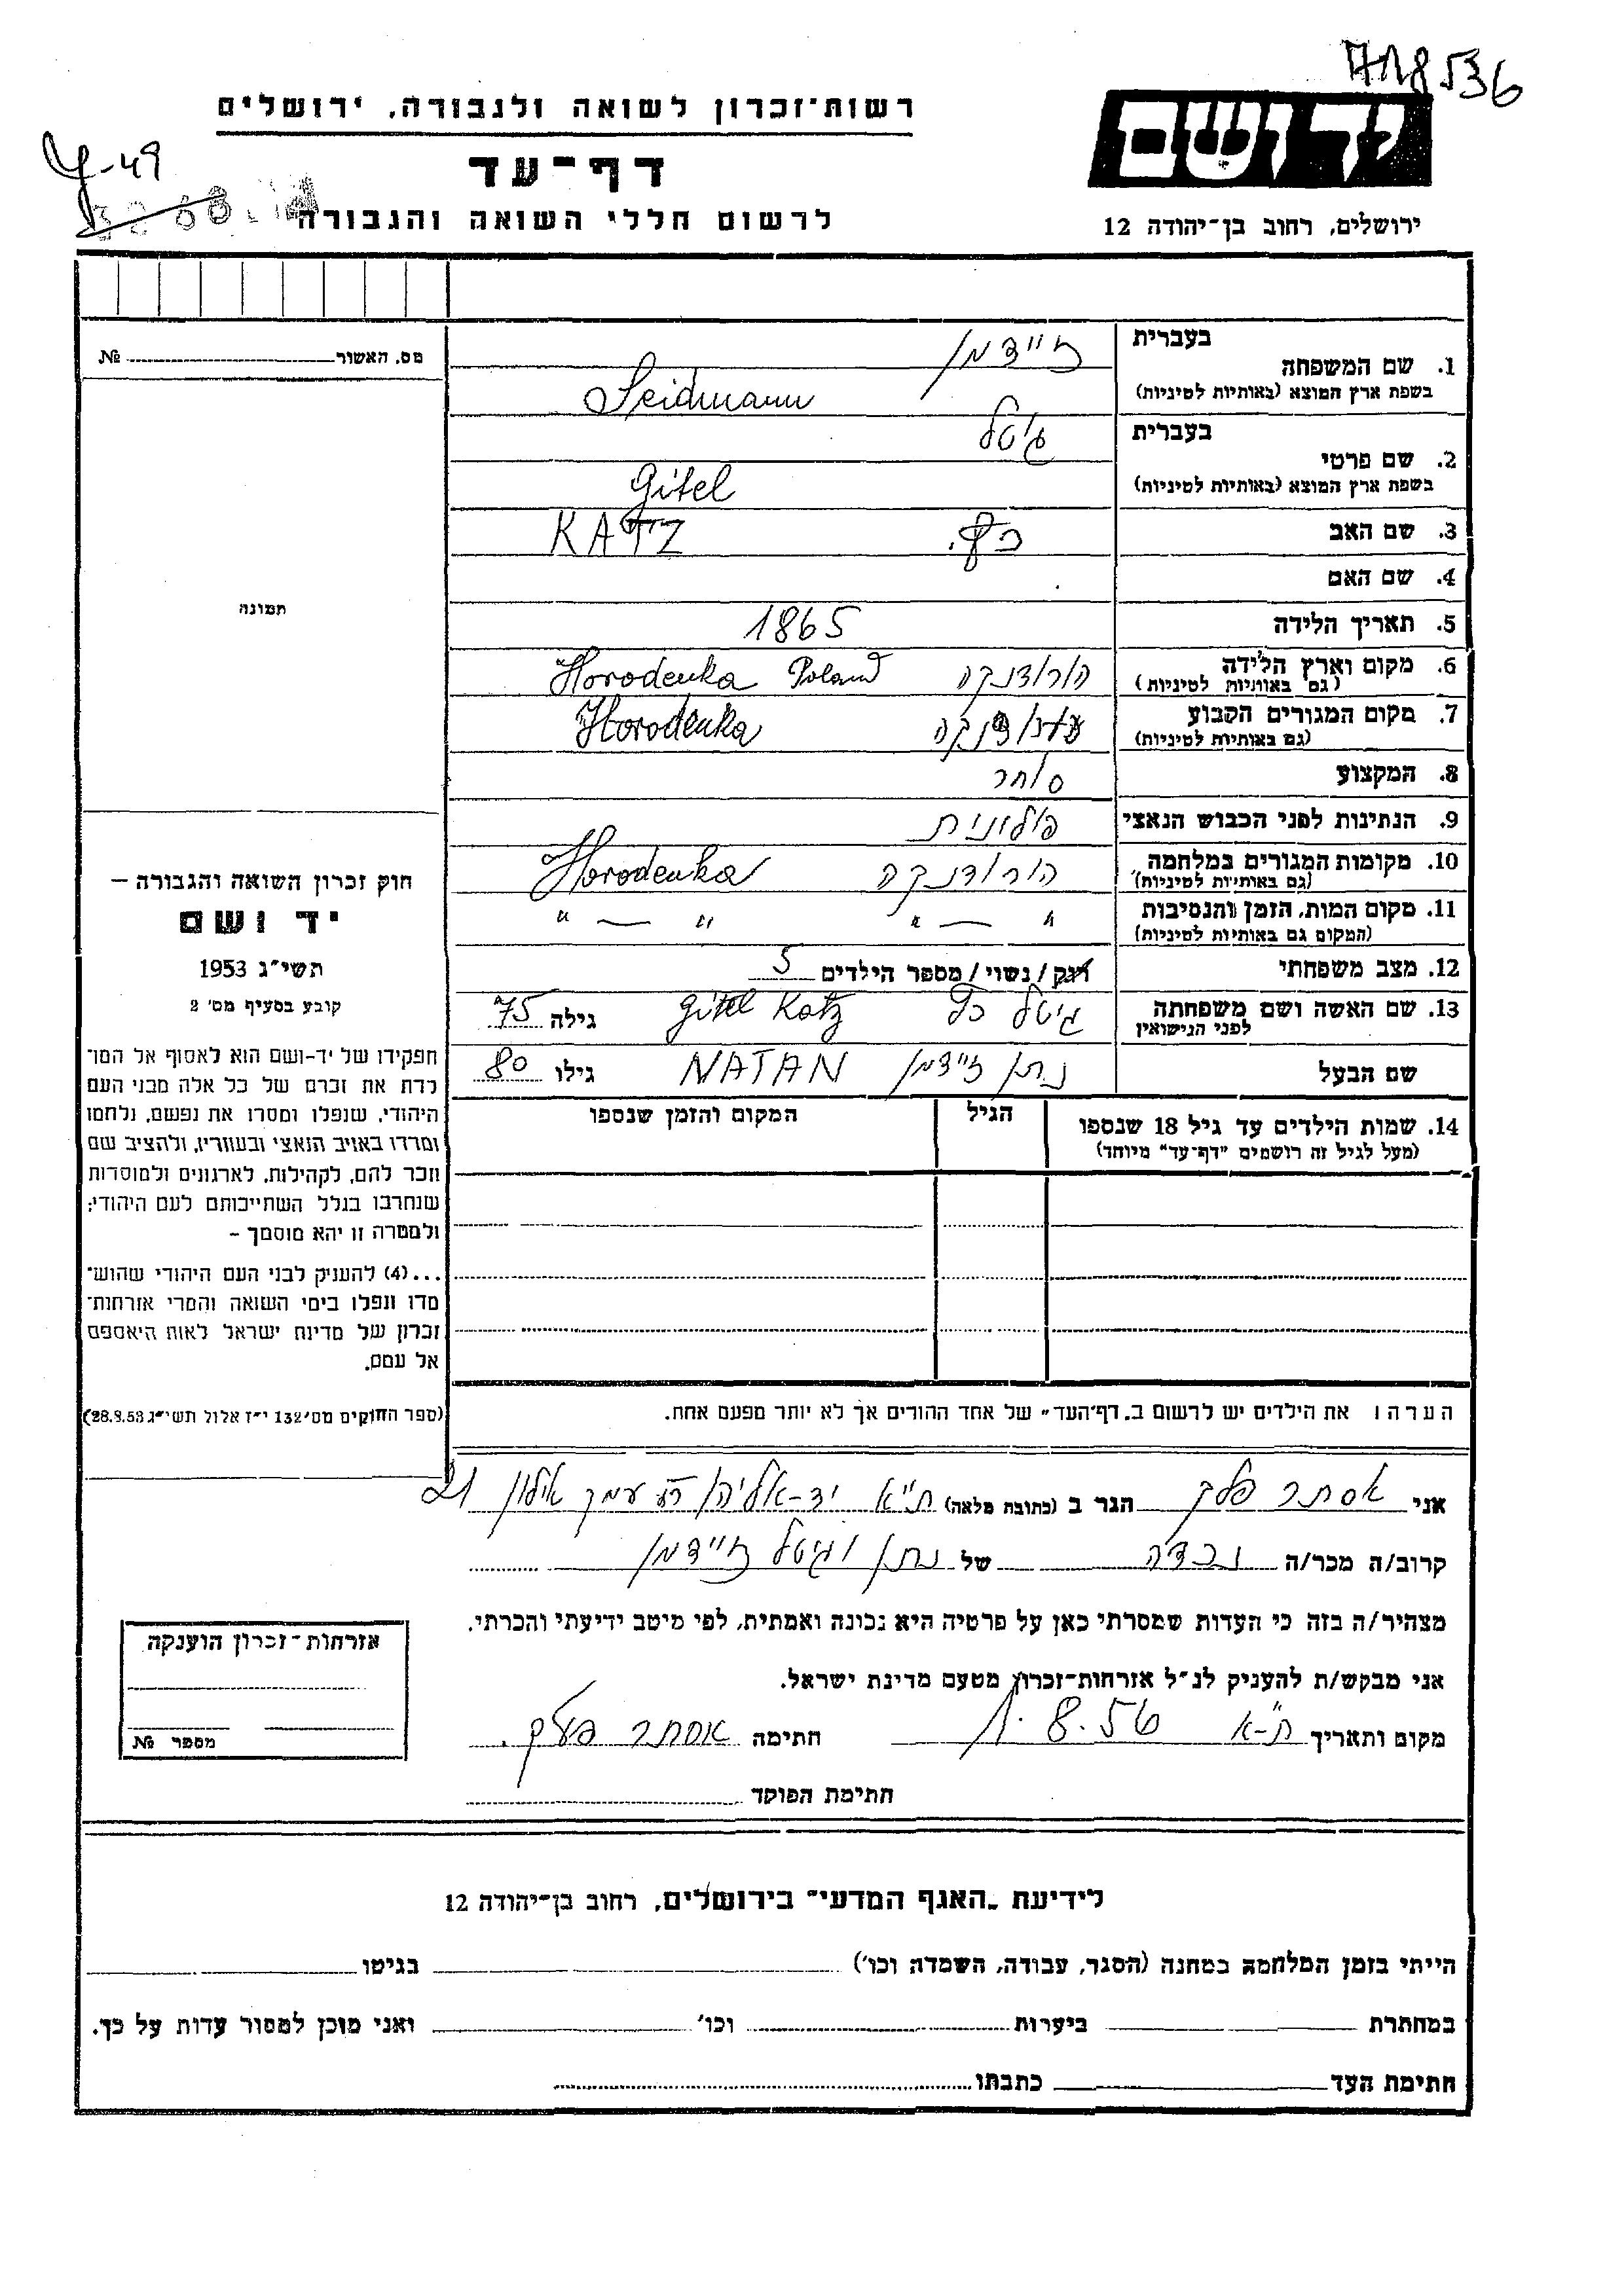 718536
רשות־זכרון לשואה ולגבורה, ירושלים
יד ושם
דף־עד
49
לרשום חללי השואה והגבורה
ירושלים, רחוב בן־יהודה 12
מס. האשור № 
בעברית
1. שם המשפחה
זיידמן
בשפת ארץ המוצא (באותיות לטיניות)
Seidmann
בעברית
2. שם פרטי
גיטל
בשפת ארץ המוצא (באותיות לטיניות)
Gitel
3. שם האב כץ. KATZ
4. שם האם
5. תאריך הלידה 1865
6. מקום וארץ הלידה הורודנקה Horodenka Poland
(גם באותיות לטיניות)
7. מקום המגורים הקבוע Horodenka
(גם באותיות לטיניות)
8. המקצוע סוחר
9. הנתינות לפני הכבוש הנאצי פולונית
10. מקומות המגורים במלחמה הורודנקה Horodenka
(גם באותיות לטיניות)
11. מקום המות, הזמן והנסיבות " — " " — "
(המקום גם באותיות לטיניות)
12. מצב משפחתי רוק / נשוי / מספר הילדים 5
13. שם האשה ושם משפחתה גיטל כץ Gitel Katz גילה 75
לפני הנישואין
שם הבעל נתן זיידמן NATAN גילו 80
14. שמות הילדים עד גיל 18 שנספו הגיל המקום והזמן שנספו
(מעל לגיל זה רושמים "דף־עד" מיוחד)
הערה: את הילדים יש לרשום ב„דף־העד" של אחד ההורים אך לא יותר מפעם אחת.
תמונה
חוק זכרון השואה והגבורה –
יד ושם
תשי"ג 1953
קובע בסעיף מס' 2
תפקידו של יד-ושם הוא לאסוף אל המו־
לדת את זכרם של כל אלה מבני העם
היהודי, שנפלו ומסרו את נפשם, נלחמו
ומרדו באויב הנאצי ובעוזריו, ולהציב שם
וזכר להם, לקהילות, לארגונים ולמוסדות
שנחרבו בגלל השתייכותם לעם היהודי;
ולמטרה זו יהא מוסמך –
...(4) להעניק לבני העם היהודי שהוש־
מדו ונפלו בימי השואה והמרי אזרחות־
זכרון של מדינת ישראל לאות היאספם
אל עמם.
(ספר החוקים מס' 132 י"ז אלול תשי"ג 28.8.53)
אני אסתר פלק הגר ב (כתובת מלאה) ת"א יד-אליהו עמק אילון 21
קרוב/ה מכר/ה נכדה של נתן וגיטל זיידמן
מצהיר/ה בזה כי העדות שמסרתי כאן על פרטיה היא נכונה ואמתית, לפי מיטב ידיעתי והכרתי.
אני מבקש/ת להעניק לנ"ל אזרחות־זכרון מטעם מדינת ישראל.
מקום ותאריך ת"א 1.8.56 חתימה אסתר פלק.
חתימת הפוקד
אזרחות־זכרון הוענקה
מספר №
לידיעת „האגף המדעי" בירושלים, רחוב בן־יהודה 12
הייתי בזמן המלחמה במחנה (הסגר, עבודה, השמדה וכו') בגיטו
במחתרת ביערות וכו' ואני מוכן למסור עדות על כך.
חתימת העד כתבתו